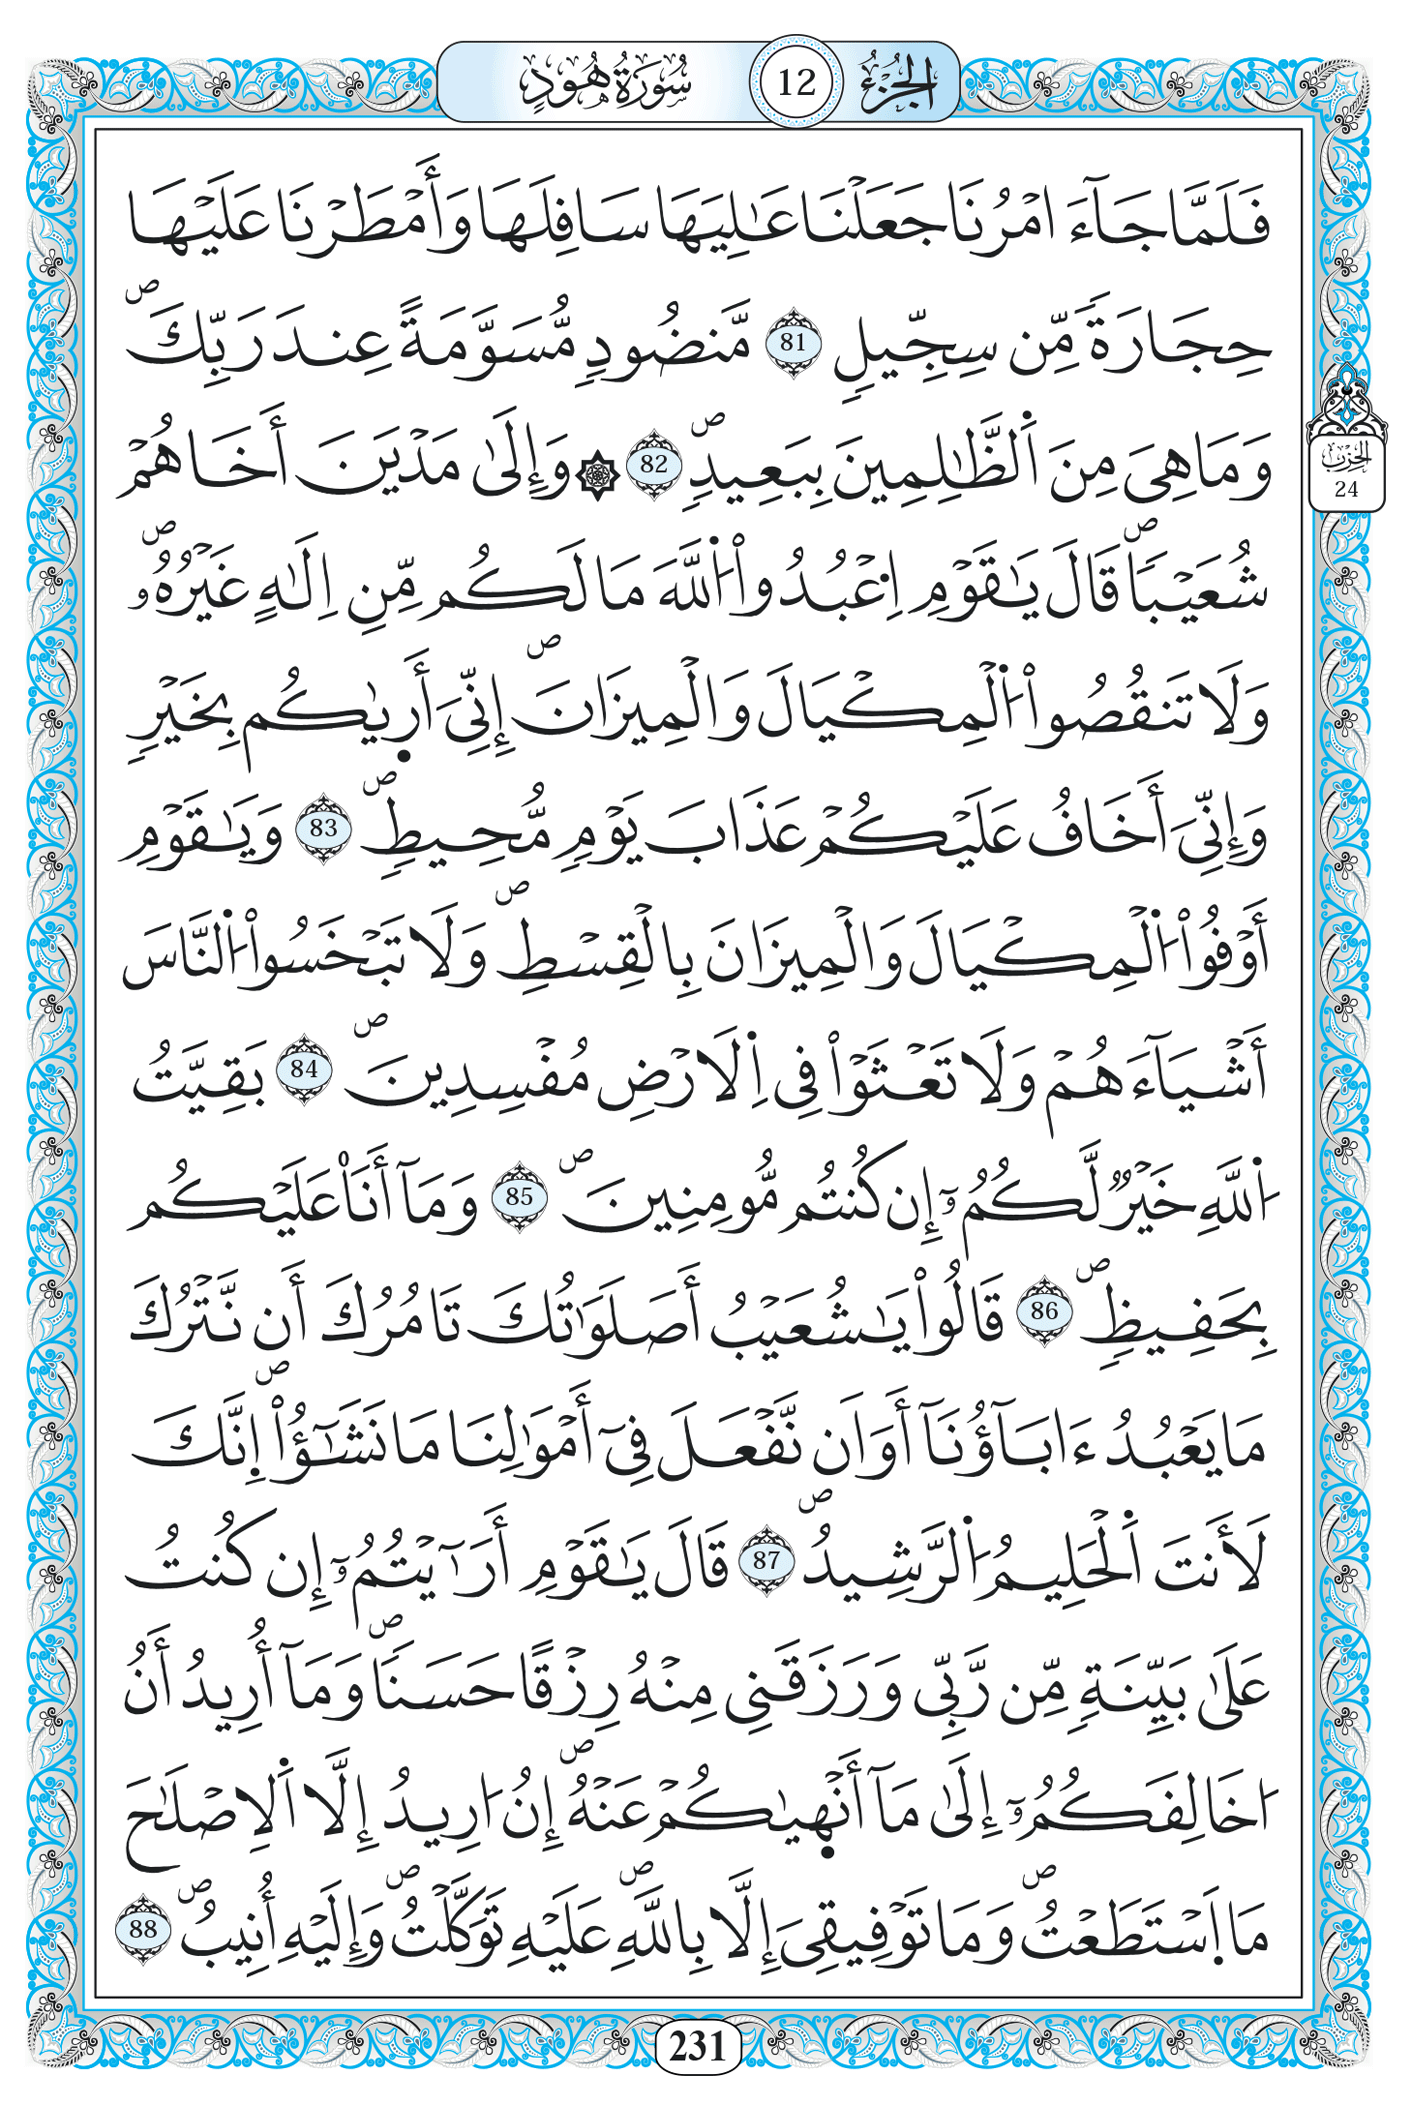 الجُزْءُ 12 سُورَةُ هُودٍ
فَلَمَّا جَآءَ امْرُنَا جَعَلْنَا عَٰلِيَهَا سَافِلَهَا وَأَمْطَرْنَا عَلَيْهَا
حِجَارَةٗ مِّن سِجِّيلٖ 81 مَّنضُودٖ مُّسَوَّمَةً عِندَ رَبِّكَۖ
وَمَا هِيَ مِنَ اَ۬لظَّٰلِمِينَ بِبَعِيدٖۖ 82 ۞ وَإِلَىٰ مَدْيَنَ أَخَاهُمْ
الحِزْب
24
شُعَيْباٗۖ قَالَ يَٰقَوْمِ اِ۟عْبُدُواْ اُ۬للَّهَ مَا لَكُم مِّنِ اِلَٰهٍ غَيْرُهُۥۖ
وَلَا تَنقُصُواْ اُ۬لْمِكْيَالَ وَالْمِيزَانَۖ إِنِّيَ أَر۪يٰكُم بِخَيْرٖ
وَإِنِّيَ أَخَافُ عَلَيْكُمْ عَذَابَ يَوْمٖ مُّحِيطٖۖ 83 وَيَٰقَوْمِ
أَوْفُواْ اُ۬لْمِكْيَالَ وَالْمِيزَانَ بِالْقِسْطِۖ وَلَا تَبْخَسُواْ اُ۬لنَّاسَ
أَشْيَآءَهُمْ وَلَا تَعْثَوْاْ فِي اِ۬لَارْضِ مُفْسِدِينَۖ 84 بَقِيَّتُ
اُ۬للَّهِ خَيْرٞ لَّكُمُۥٓ إِن كُنتُم مُّومِنِينَۖ 85 وَمَآ أَنَا۠ عَلَيْكُم
بِحَفِيظٖۖ 86 قَالُواْ يَٰشُعَيْبُ أَصَلَوَٰتُكَ تَامُرُكَ أَن نَّتْرُكَ
مَا يَعْبُدُ ءَابَآؤُنَآ أَوَ اَن نَّفْعَلَ فِيٓ أَمْوَٰلِنَا مَا نَشَٰٓؤُاْۖ اِنَّكَ
لَأَنتَ اَ۬لْحَلِيمُ اُ۬لرَّشِيدُۖ 87 قَالَ يَٰقَوْمِ أَرَٰٓيْتُمُۥٓ إِن كُنتُ
عَلَىٰ بَيِّنَةٖ مِّن رَّبِّي وَرَزَقَنِي مِنْهُ رِزْقًا حَسَناٗۖ وَمَآ أُرِيدُ أَنُ
اخَالِفَكُمُۥٓ إِلَىٰ مَآ أَنْه۪يٰكُمْ عَنْهُۖ إِنُ ا۟رِيدُ إِلَّا اَ۬لِاصْلَٰحَ
مَا اَ۪سْتَطَعْتُۖ وَمَا تَوْفِيقِيَ إِلَّا بِاللَّهِۖ عَلَيْهِ تَوَكَّلْتُۖ وَإِلَيْهِ أُنِيبُۖ 88
231